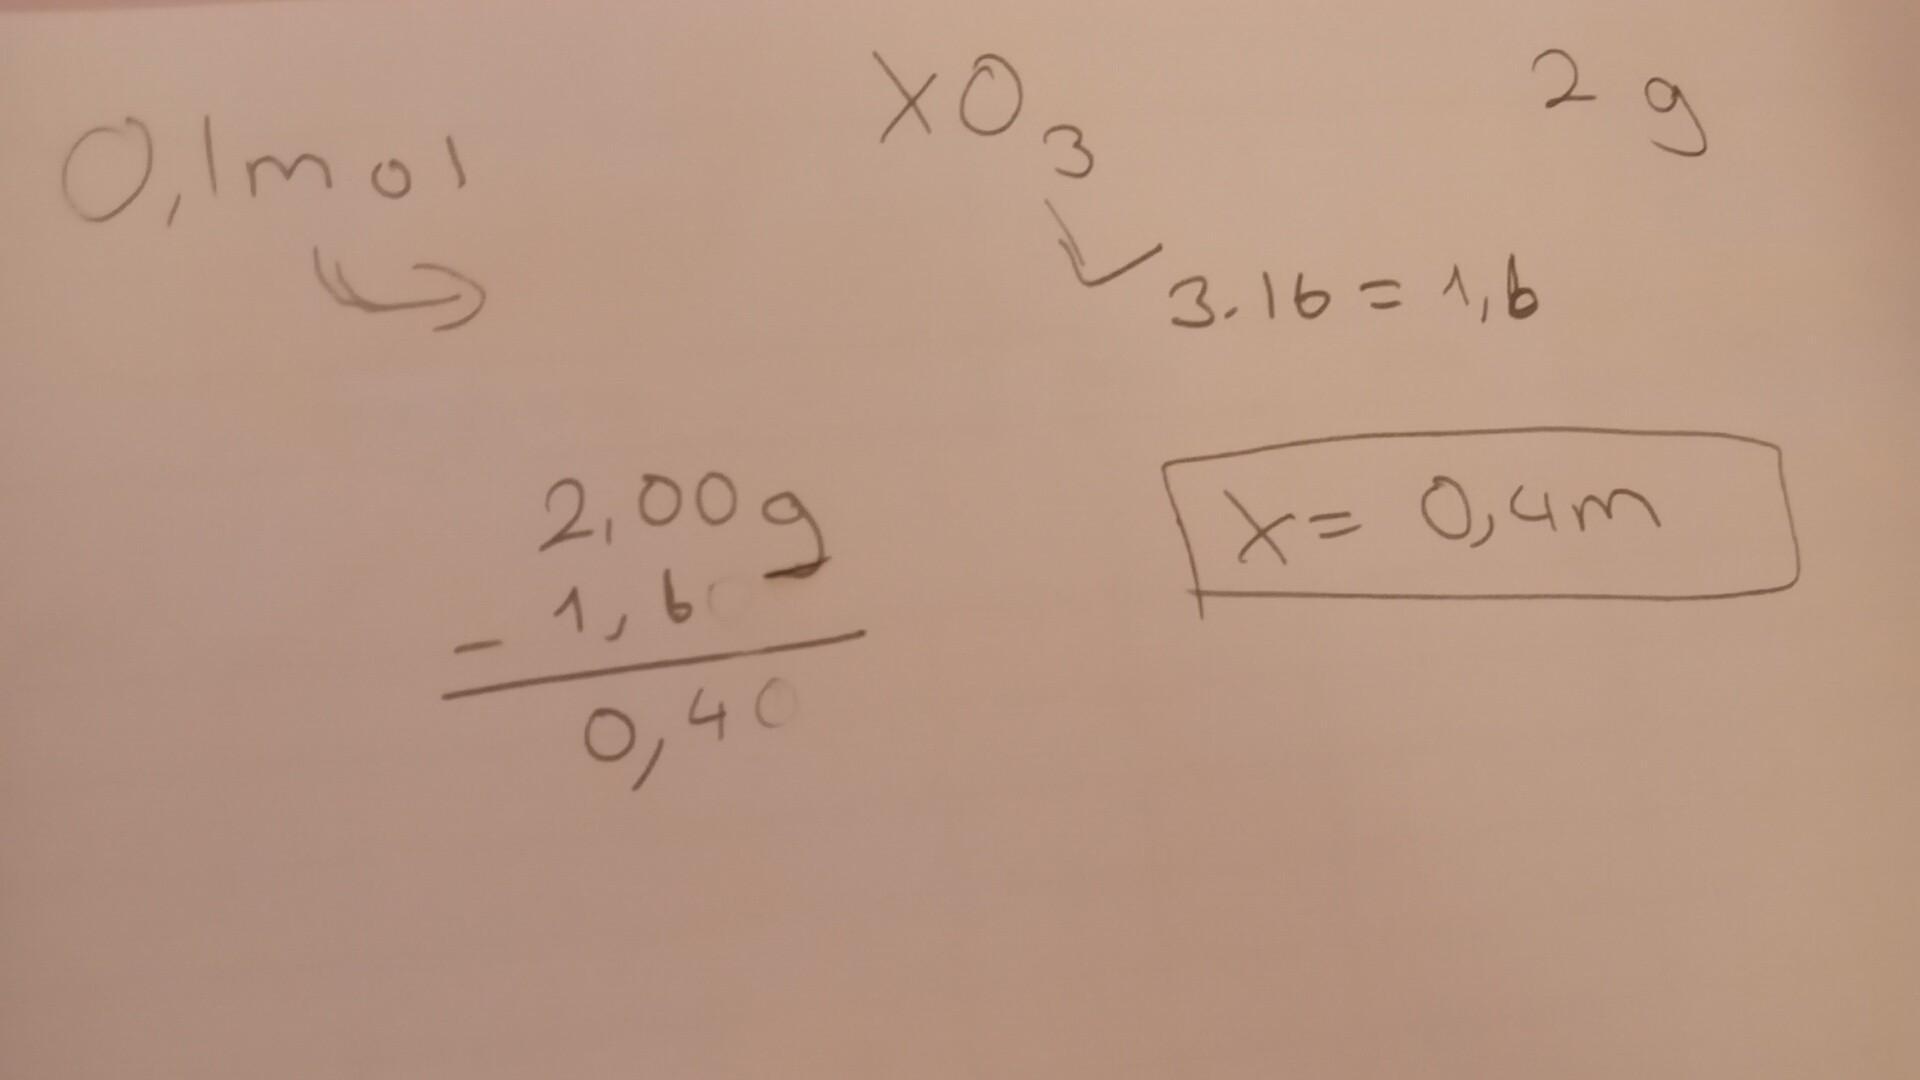 XO₃ 2 g
0,1mol
3.16 = 1,6
2,00g
- 1,60
0,40
X = 0,4m